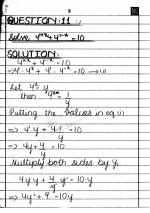 9
QUESTION:11
Solve 4¹⁺ˣ+4¹⁻ˣ=10
SOLUTION:
4¹⁺ˣ+4¹⁻ˣ=10
⇒4·4ˣ+4·4⁻ˣ=10 →(i)
Let 4ˣ=y
then 4⁻ˣ=1/y
Putting the values in eq.(i)
⇒4·y+4·1/y=10
⇒4y+4/y=10
Multiply both sides by y
4y·y+4/y·y=10·y
⇒4y²+4=10y